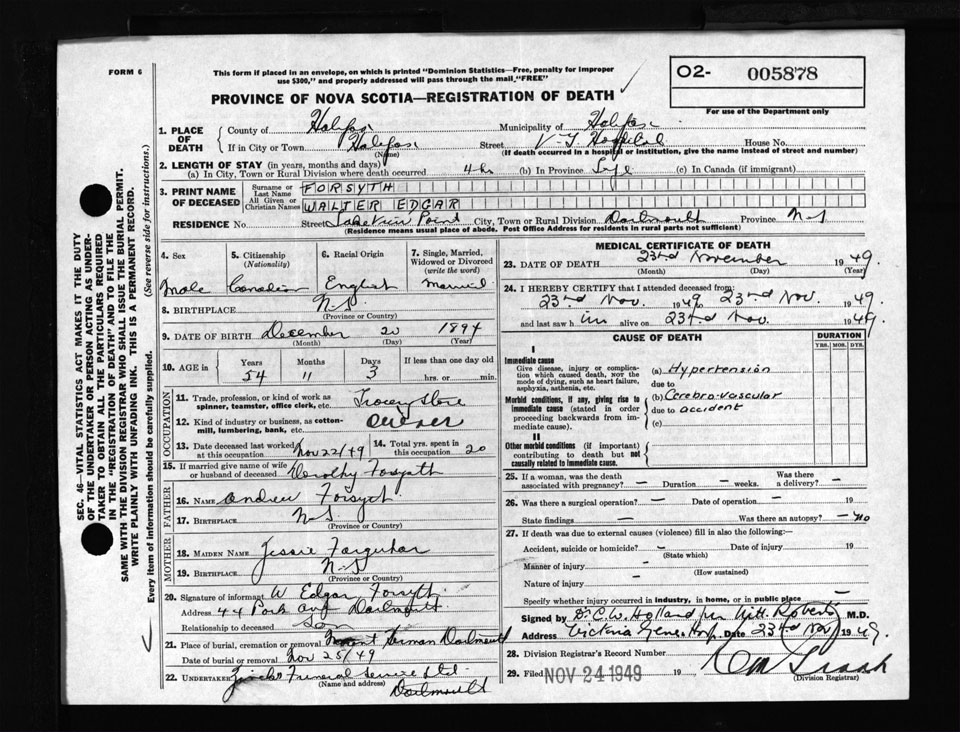 FORM 6
This form if placed in an envelope, on which is printed "Dominion Statistics—Free, penalty for improper
use $300," and properly addressed will pass through the mail "FREE"
O2- 005878
For use of the Department only
PROVINCE OF NOVA SCOTIA—REGISTRATION OF DEATH
1. PLACE OF DEATH
County of Halifax Municipality of Halifax
If in City or Town Halifax Street V. G. Hospital House No.
(Name) (If death occurred in a hospital or institution, give the name instead of street and number)
2. LENGTH OF STAY (in years, months and days)
(a) In City, Town or Rural Division where death occurred 4 hrs (b) In Province Life (c) In Canada (if immigrant)
3. PRINT NAME OF DECEASED
Surname or Last Name FORSYTH
All Given or Christian Names WALTER EDGAR
RESIDENCE No. Street Lakeview Point City, Town or Rural Division Dartmouth Province N.S.
(Residence means usual place of abode. Post Office Address for residents in rural parts not sufficient)
4. Sex
Male
5. Citizenship (Nationality)
Canadian
6. Racial Origin
English
7. Single, Married, Widowed or Divorced (write the word)
Married
8. BIRTHPLACE N.S.
(Province or Country)
9. DATE OF BIRTH December 20 1894
(Month) (Day) (Year)
10. AGE in Years Months Days If less than one day old
54 11 3 hrs. or min.
OCCUPATION
11. Trade, profession, or kind of work as
spinner, teamster, office clerk, etc. Grocery Store
12. Kind of industry or business, as cotton-
mill, lumbering, bank, etc. Owner
13. Date deceased last worked at this occupation Nov 22/49 14. Total yrs. spent in this occupation 20
15. If married give name of wife
or husband of deceased Dorothy Forsyth
FATHER
16. NAME Andrew Forsyth
17. BIRTHPLACE N.S.
(Province or Country)
MOTHER
18. MAIDEN NAME Jessie Farquhar
19. BIRTHPLACE N.S.
(Province or Country)
20. Signature of informant W Edgar Forsyth
Address 44 Park Ave Dartmouth
Relationship to deceased Son
21. Place of burial, cremation or removal Mount Herman Dartmouth
Date of burial or removal Nov 25/49
22. UNDERTAKER Funeral Service Ltd.
(Name and address) Dartmouth
MEDICAL CERTIFICATE OF DEATH
23. DATE OF DEATH 23rd November 1949.
(Month) (Day) (Year)
24. I HEREBY CERTIFY that I attended deceased from:
23rd Nov. 1949 to 23rd Nov. 1949.
and last saw him alive on 23rd Nov. 1949.
CAUSE OF DEATH
DURATION
YRS. MOS. DYS.
I
Immediate cause
Give disease, injury or complica-
tion which caused death, NOT the
mode of dying, such as heart failure,
asphyxia, asthenia, etc.
(a) Hypertension
due to
Morbid conditions, if any, giving rise to
immediate cause (stated in order
proceeding backwards from im-
mediate cause).
(b) Cerebro-vascular
due to accident
(c)
II
Other morbid conditions (if important)
contributing to death but not
causally related to immediate cause.
25. If a woman, was the death
associated with pregnancy? — Duration — weeks. Was there a delivery? —
26. Was there a surgical operation? — Date of operation — 19
State findings — Was there an autopsy? — no
27. If death was due to external causes (violence) fill in also the following:—
Accident, suicide or homicide? — Date of injury 19
(State which)
Manner of injury -
(How sustained)
Nature of injury -
Specify whether injury occurred in industry, in home, or in public place —
Signed by Dr. C. W. Holland per Roberts M.D.
Address Victoria Gen. Hosp. Date 23rd Nov 1949.
28. Division Registrar's Record Number
29. Filed NOV 24 1949 19
(Division Registrar)
SEC. 46—VITAL STATISTICS ACT MAKES IT THE DUTY
OF THE UNDERTAKER OR PERSON ACTING AS UNDER-
TAKER TO OBTAIN ALL THE PARTICULARS REQUIRED
IN THE "REGISTRATION OF DEATH" AND TO FILE THE
SAME WITH THE DIVISION REGISTRAR WHO SHALL ISSUE THE BURIAL PERMIT.
WRITE PLAINLY WITH UNFADING INK. THIS IS A PERMANENT RECORD.
Every item of information should be carefully supplied. (See reverse side for instructions.)